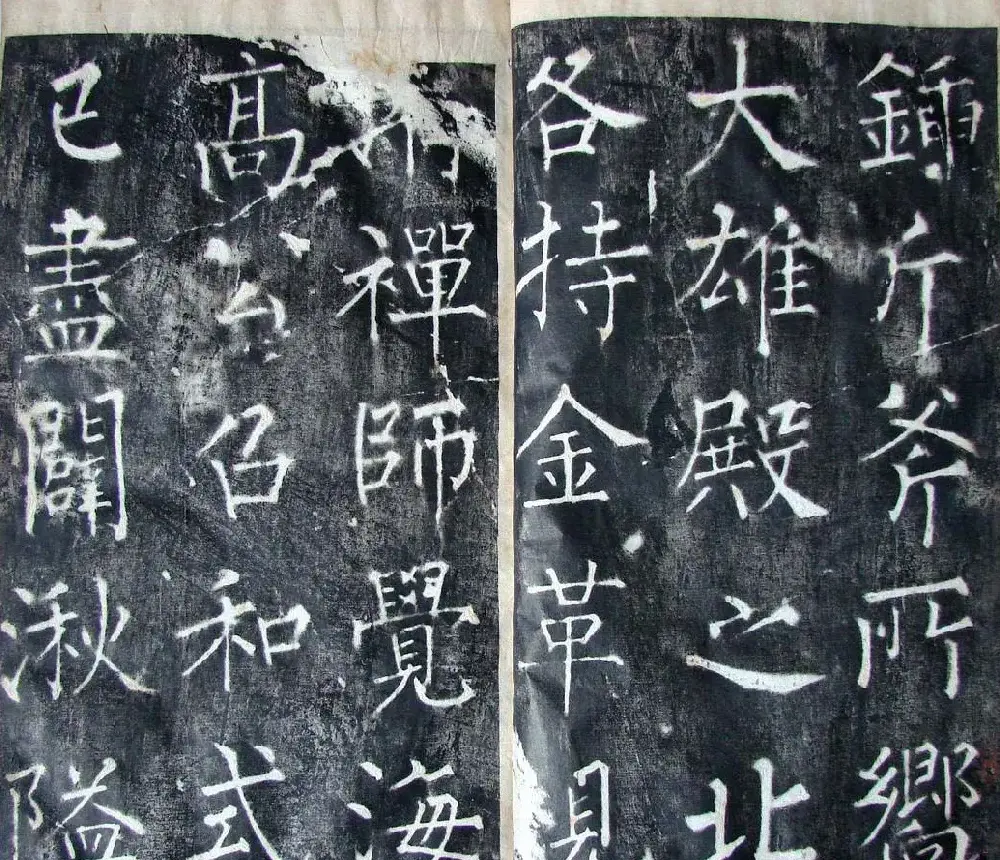 鍤斤斧所嚮
大雄殿之北
各持金革
禪師覺海
高召和式
已盡闢湫隘